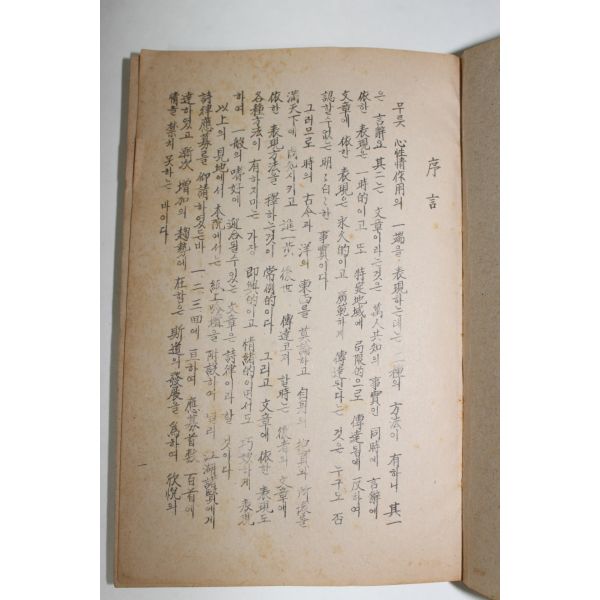 序言
무릇 心性情作用의 一端을 表現하는데는 二種의 方法이 有하니 其一
은 言辭요 其二는 文章이라는것은 萬人共知의 事實인 同時에 言辭에
依한 表現은 一時的이고 또 特定地域에 局限的으로 傳達됨에 反하여
文章에 依한 表現은 永久的이고 廣範하게 傳達된다는 것은 누구도 否
認할수없는 明々白々한 事實이다
그러므로 時의 古今과 洋의 東西를 莫論하고 自身의 抱負와 所懷를
滿天下에 시키고 後世 傳達코저 할時는 後者의 文章에
依한 表現方法을 擇하는것이 常例的이다 그리고 文章에 依한 表現도
各種方法이 有하지마는 가장 即興的이고 情緖的이면서도 巧妙하게 表現
하여 一般의 嗜好에 適合될수있는 文章은 詩律이라 할 것이다
以上의 見地에서 本院에서는 紙上 을 附設하여 널리 江湖諸賢에게
詩律應募를 仰請하였든바 一二三回에 亘하여 應募首数 百首에
達하였고 漸次 增加의 趨勢에 在함은 斯道의 發展을 爲하여 欣悅의
情을 禁치 못하는 바이다
一